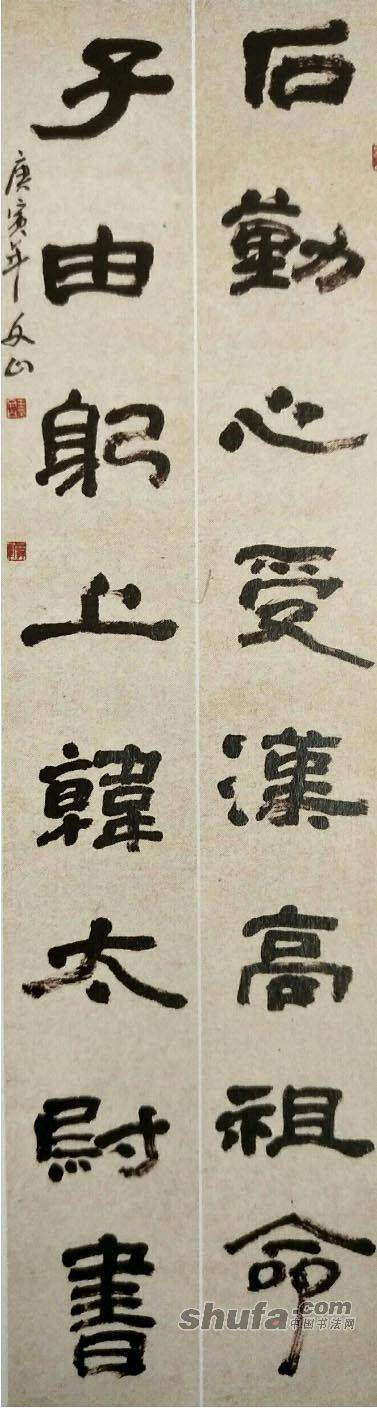 石勤心受漢高祖命
子由躬上韓太尉書
庚寅年文山
shufa.com
中国书法网